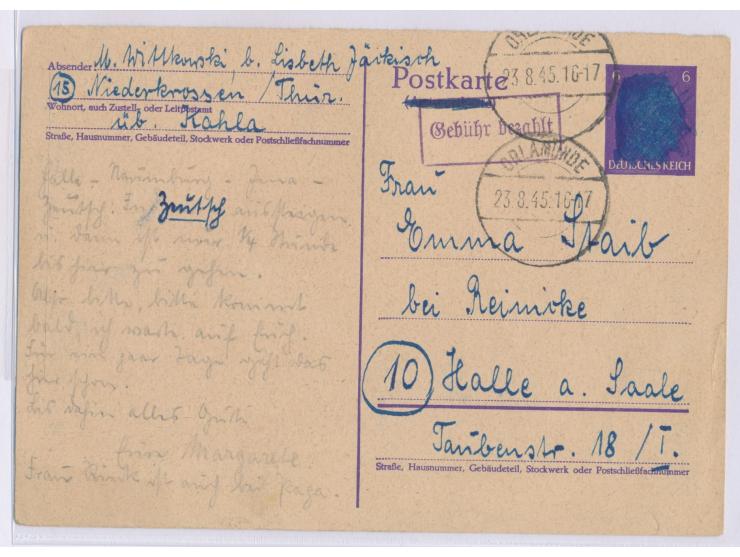 Absender M. Wittkowski, b. Lisbeth Jäckisch
(15) Niederkrossen / Thür.
Wohnort, auch Zustell- oder Leitpostamt
üb. Kahla
Straße, Hausnummer, Gebäudeteil, Stockwerk oder Postschließfachnummer
Halle - Naumburg - Jena -
Zeutsch. In Zeutsch aussteigen
u. dann ist nur 1/4 Stunde
bis hier zu gehen.
Also bitte, bitte kommt
bald, ich warte auf Euch.
Für ein paar Tage geht das
hier schon.
Bis dahin alles Gute
Eure Margarete
Frau ist auch bei Papa.
Postkarte
ORLAMÜNDE
23.8.45.16-17
Gebühr bezahlt
6 6
DEUTSCHES REICH
ORLAMÜNDE
23.8.45.16-17
Frau
Emma Staib
bei Reinicke
(10) Halle a. Saale
Taubenstr. 18 / I.
Straße, Hausnummer, Gebäudeteil, Stockwerk oder Postschließfachnummer